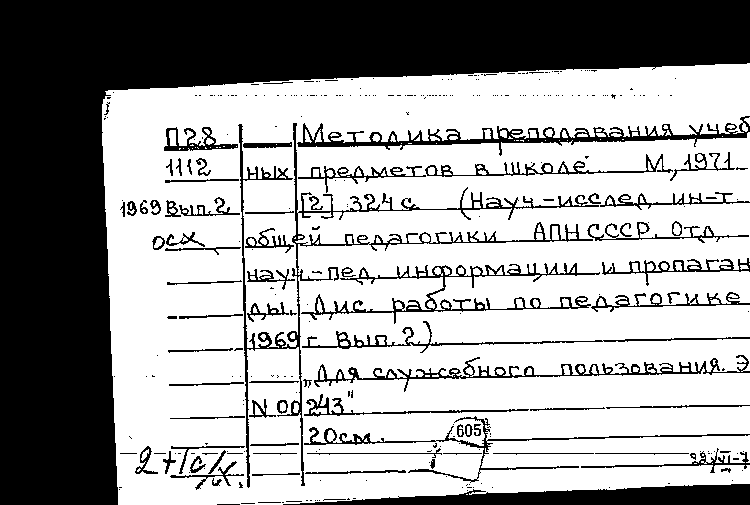 П28 Методика преподавания учеб
1112 ных предметов в школе. М., 1971
1969 Вып. 2 [2], 324 с. (Науч.-исслед. ин-т
осх общей педагогики АПН СССР. Отд.
науч.-пед. информации и пропаган
ды. Дис. работы по педагогике
1969 г. Вып. 2).
„Для служебного пользования. Э
N 00243".
20см.
605